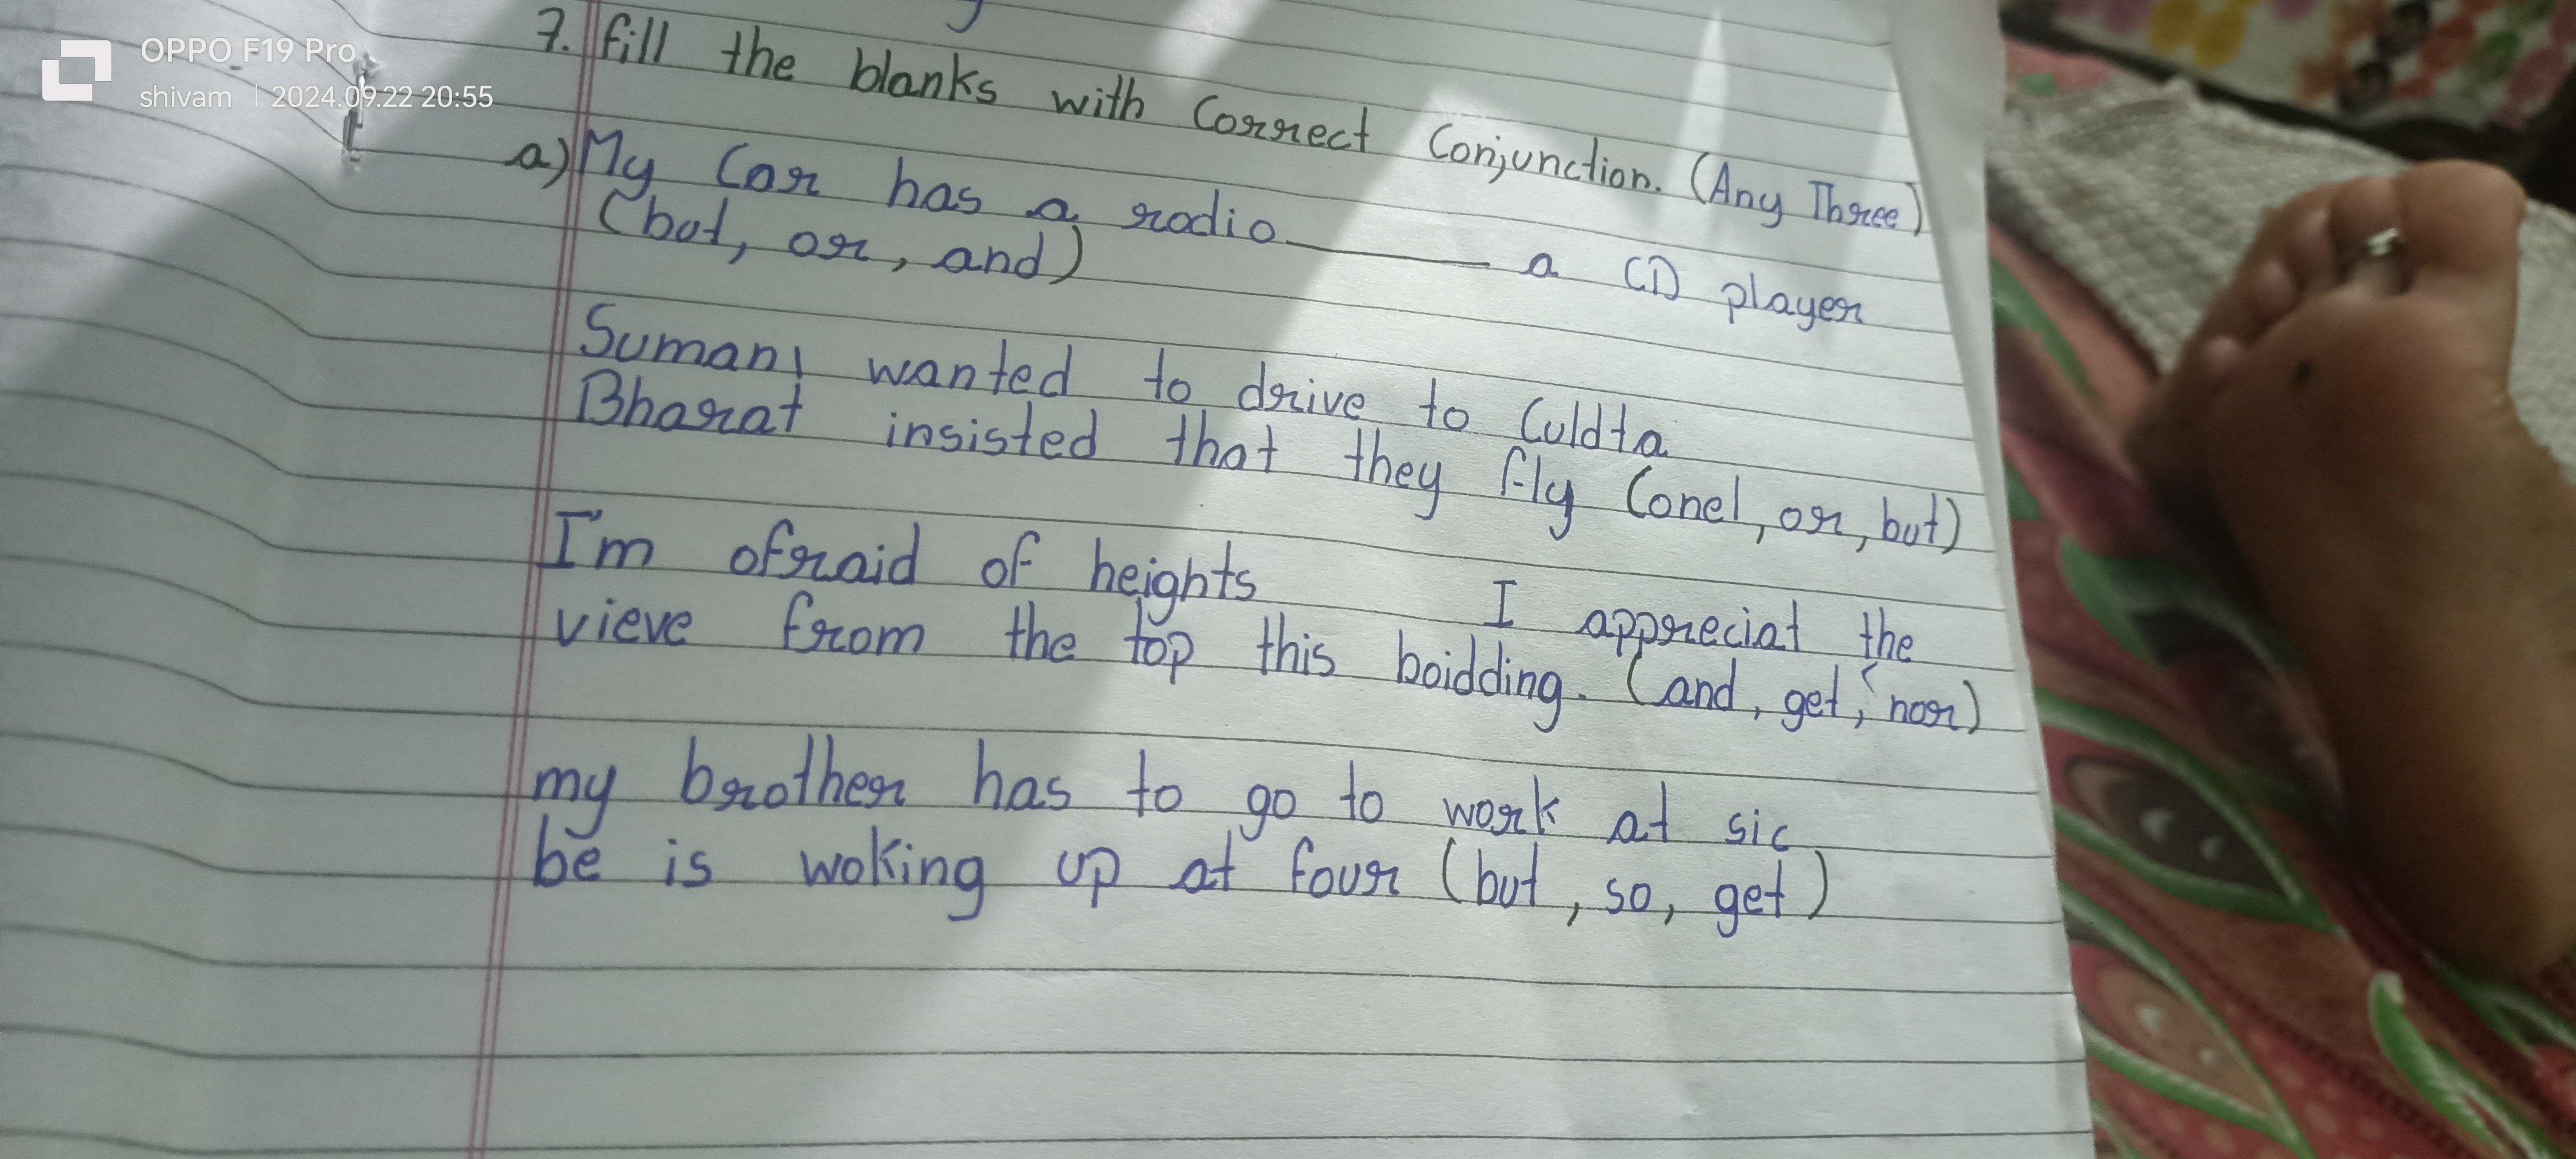 OPPO F19 Pro
shivam | 2024.09.22 20:55
7. fill the blanks with Correct Conjunction. (Any Three)
a) My Car has a radio ______ a CD player
(but, or, and)
Suman, wanted to drive to Culdta
Bharat insisted that they fly (onel, or, but)
I'm ofraid of heights I appreciat the
vieve from the top this boidding. (and, get, nor)
my brother has to go to work at sic
be is woking up at four (but, so, get)